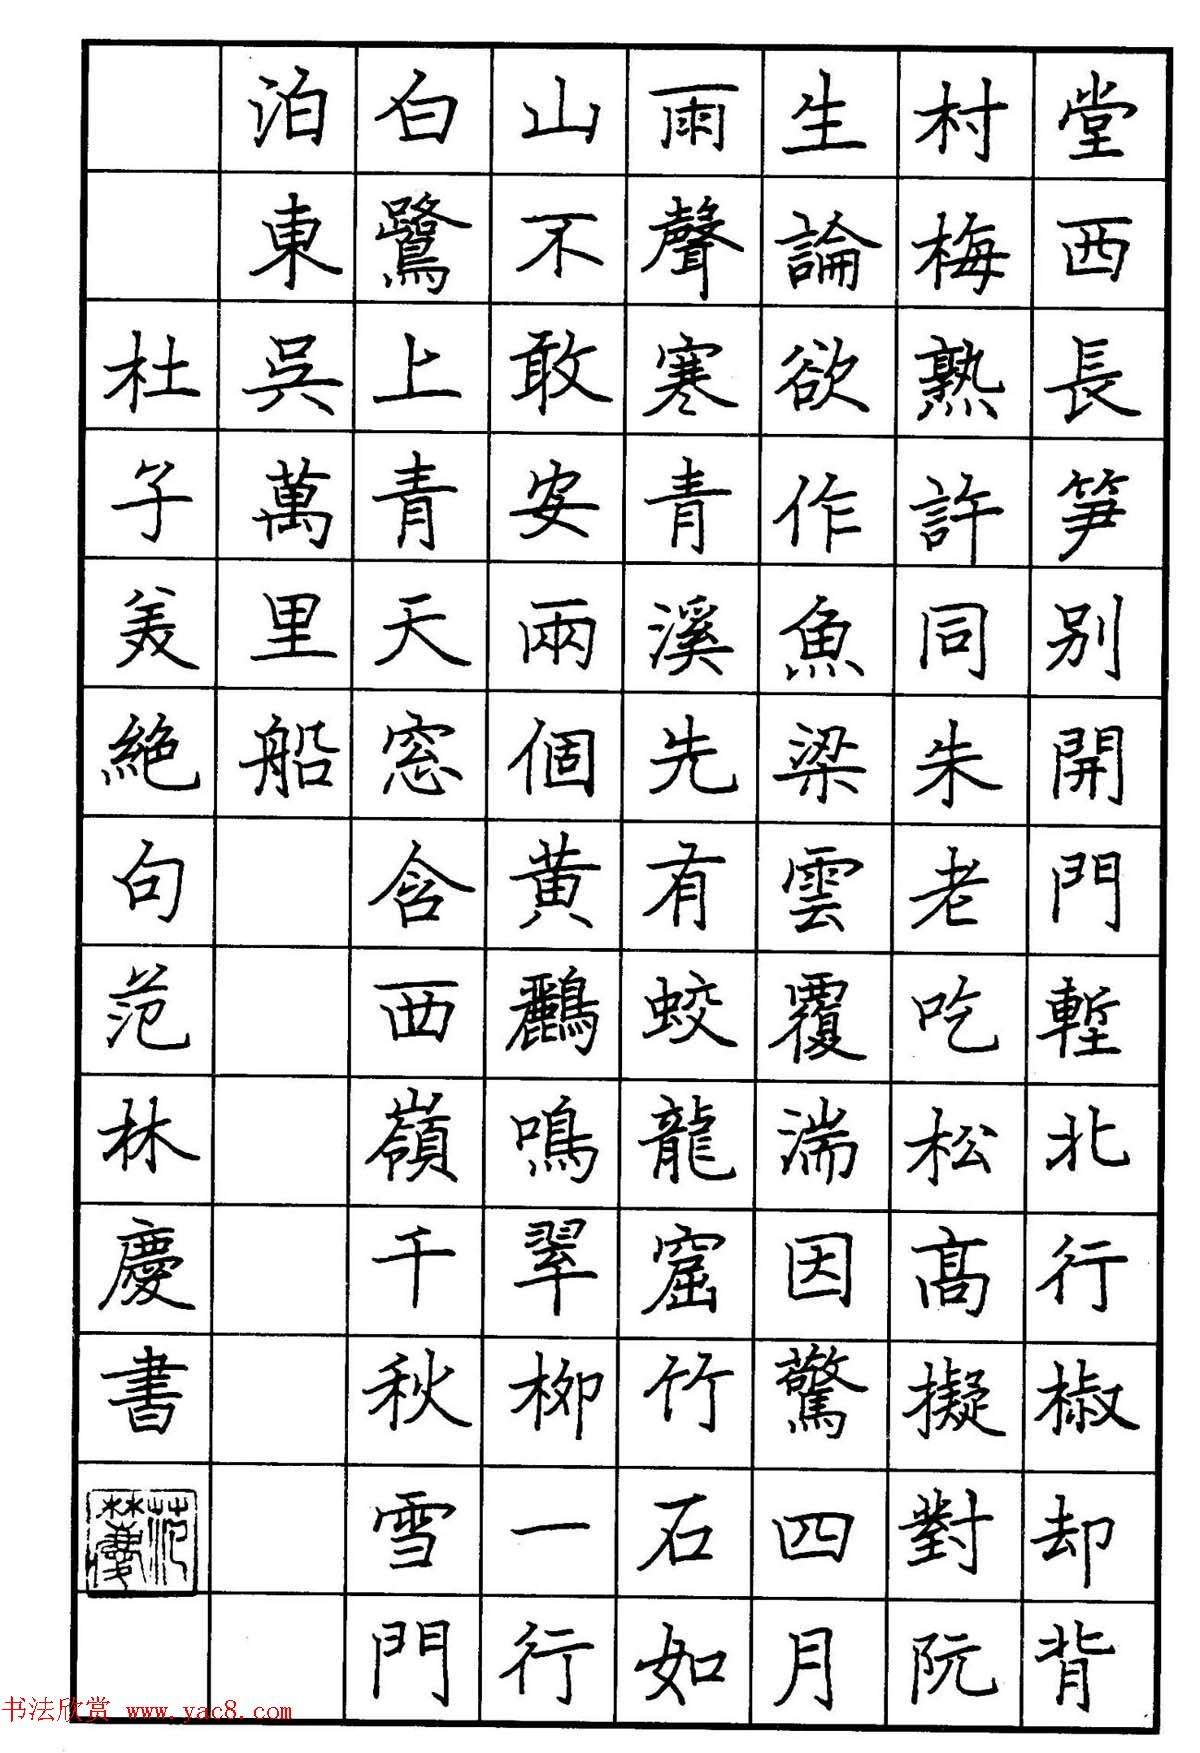 堂西長笋別開門塹北行椒却背
村梅熟許同朱老吃松高擬對阮
生論欲作魚梁雲覆湍因驚四月
雨聲寒青溪先有蛟龍窟竹石如
山不敢安兩個黃鸝鳴翠柳一行
白鷺上青天窓含西嶺千秋雪門
泊東吳萬里船
杜子美絕句范林慶書
范林慶
书法欣赏 www.yac8.com